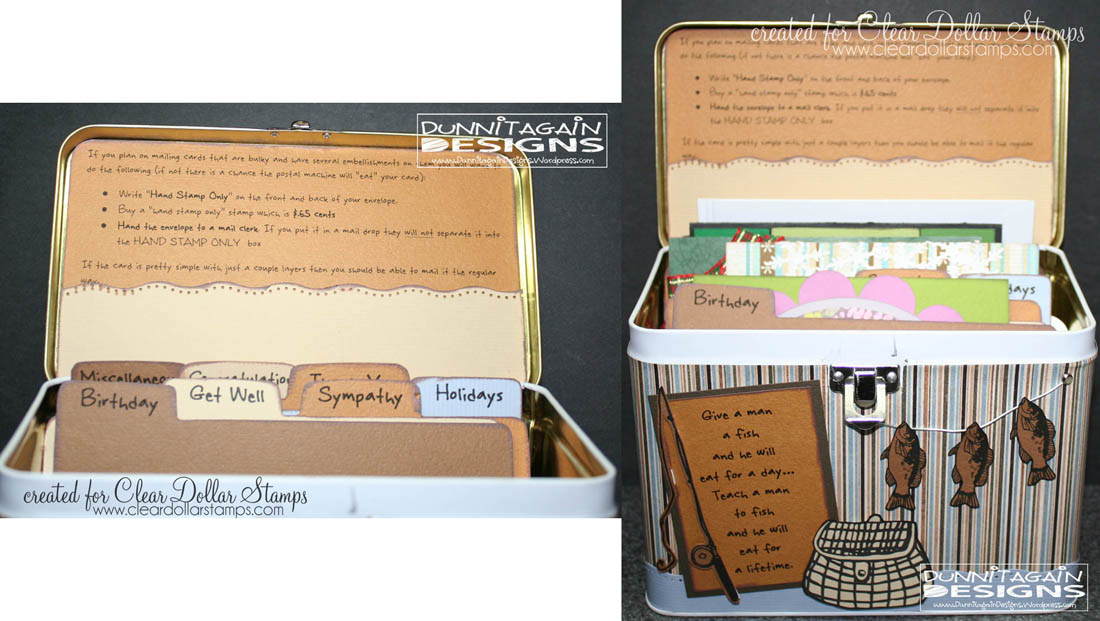 DUNNITAGAIN
DESIGNS
www.DunnitagainDesigns.Wordpress.com
If you plan on mailing cards that are bulky and have several embellishments on them you
do the following (if not there is a chance the postal machine will "eat" your card):
Write "Hand Stamp Only" on the front and back of your envelope.
Buy a "hand stamp only" stamp which is $.65 cents
Hand the envelope to a mail clerk. If you put it in a mail drop they will not separate it into
the HAND STAMP ONLY box
If the card is pretty simple with just a couple layers then you should be able to mail it the regular
way.
Miscellaneo
Congratulation
Birthday
Get Well
Sympathy
Holidays
created for Clear Dollar Stamps
www.cleardollarstamps.com
created for Clear Dollar Stamps
www.cleardollarstamps.com
If you plan on mailing cards that are
do the following (if not there is a chance the postal machine will "eat" your card):
Write "Hand Stamp Only" on the front and back of your envelope.
Buy a "hand stamp only" stamp which is $.65 cents
Hand the envelope to a mail clerk. If you put it in a mail drop they will not separate it into
the HAND STAMP ONLY box
If the card is pretty simple with just a couple layers then you should be able to mail it the regular
Birthday
days
Give a man
a fish
and he will
eat for a day...
Teach a man
to fish
and he will
eat for
a lifetime.
DUNNITAGAIN
DESIGNS
www.DunnitagainDesigns.Wordpress.com